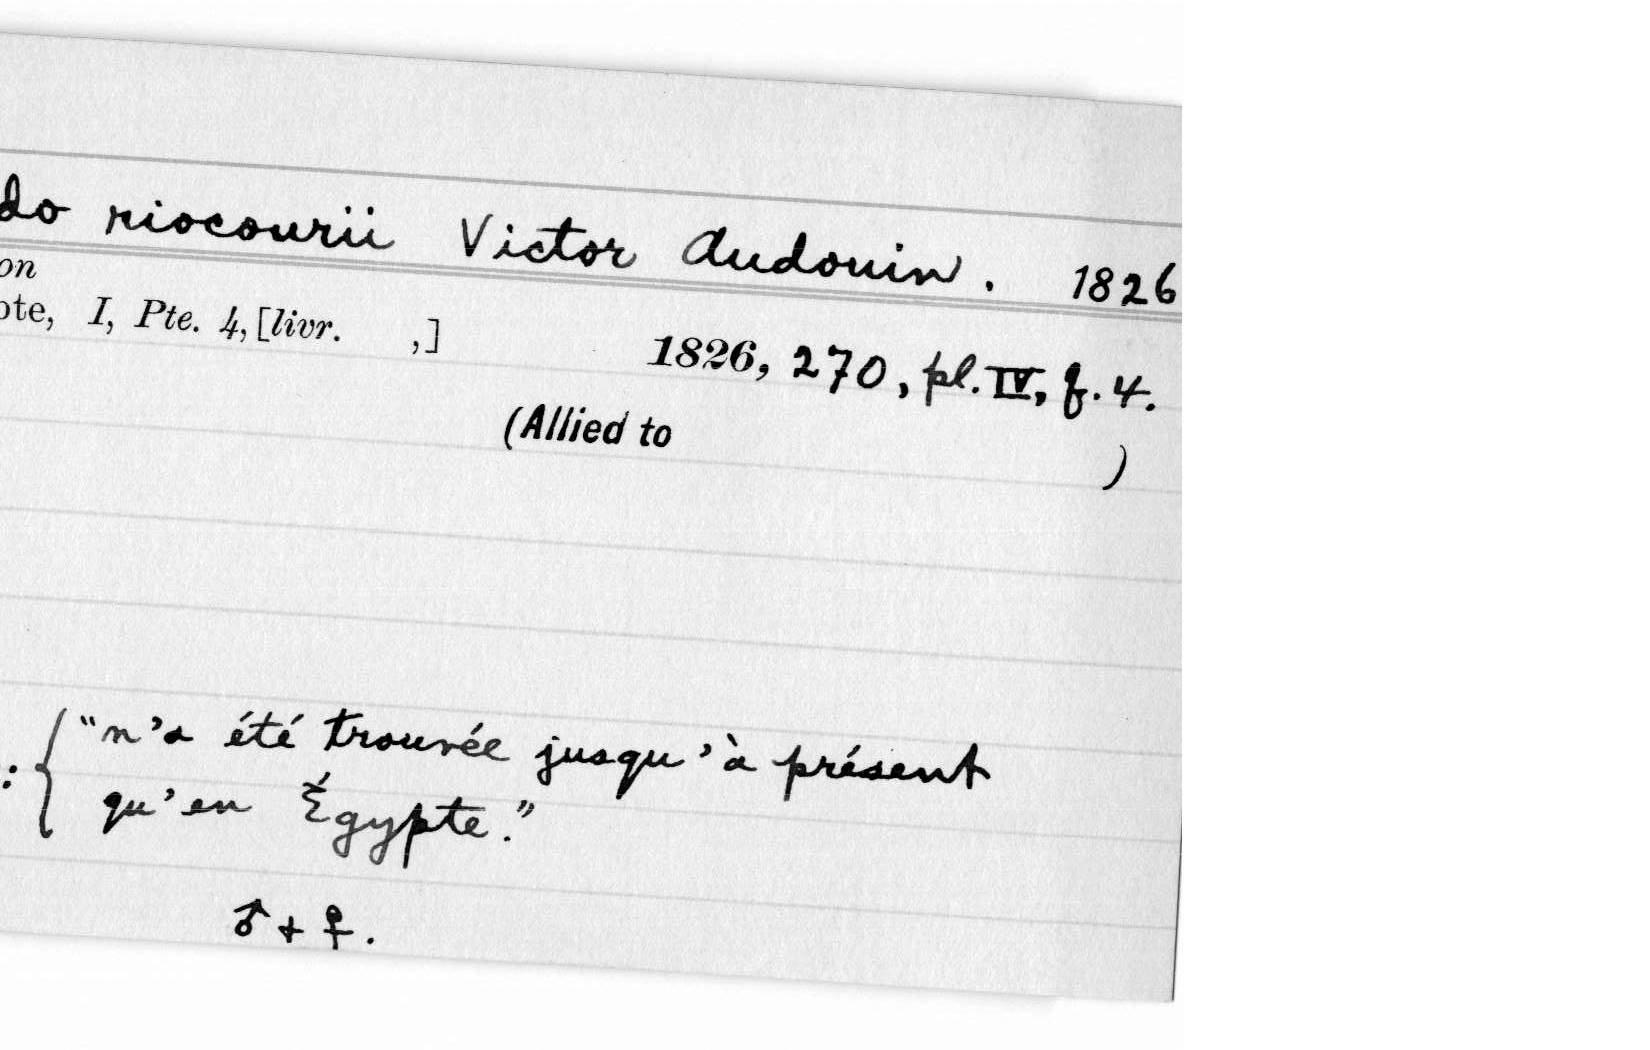 do riocourii Victor Audouin. 1826
on
pte, I, Pte. 4, [livr. ,] 1826, 270, pl. IV, f. 4.
(Allied to )
: { "n'a été trouvée jusqu'à présent
qu'en Égypte."
♂ + ♀.